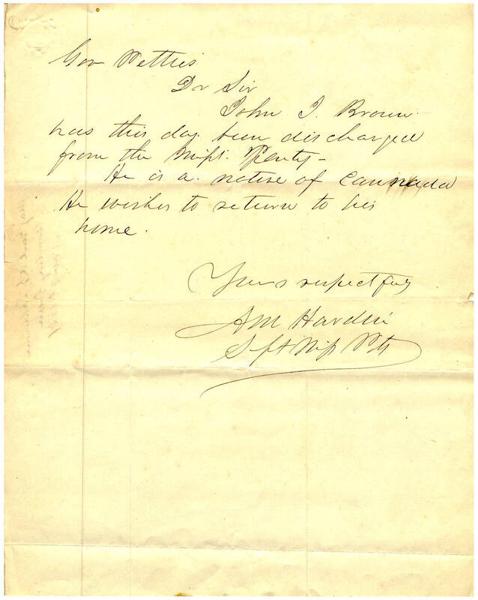 Gov Pettus
Dr Sir
John J. Brown
has this day been discharged
from the Missi. Penty-
He is a native of Cannada
He wishes to return to his
home.
Yours respectfuly
A M Hardin
Spt Miss Pty